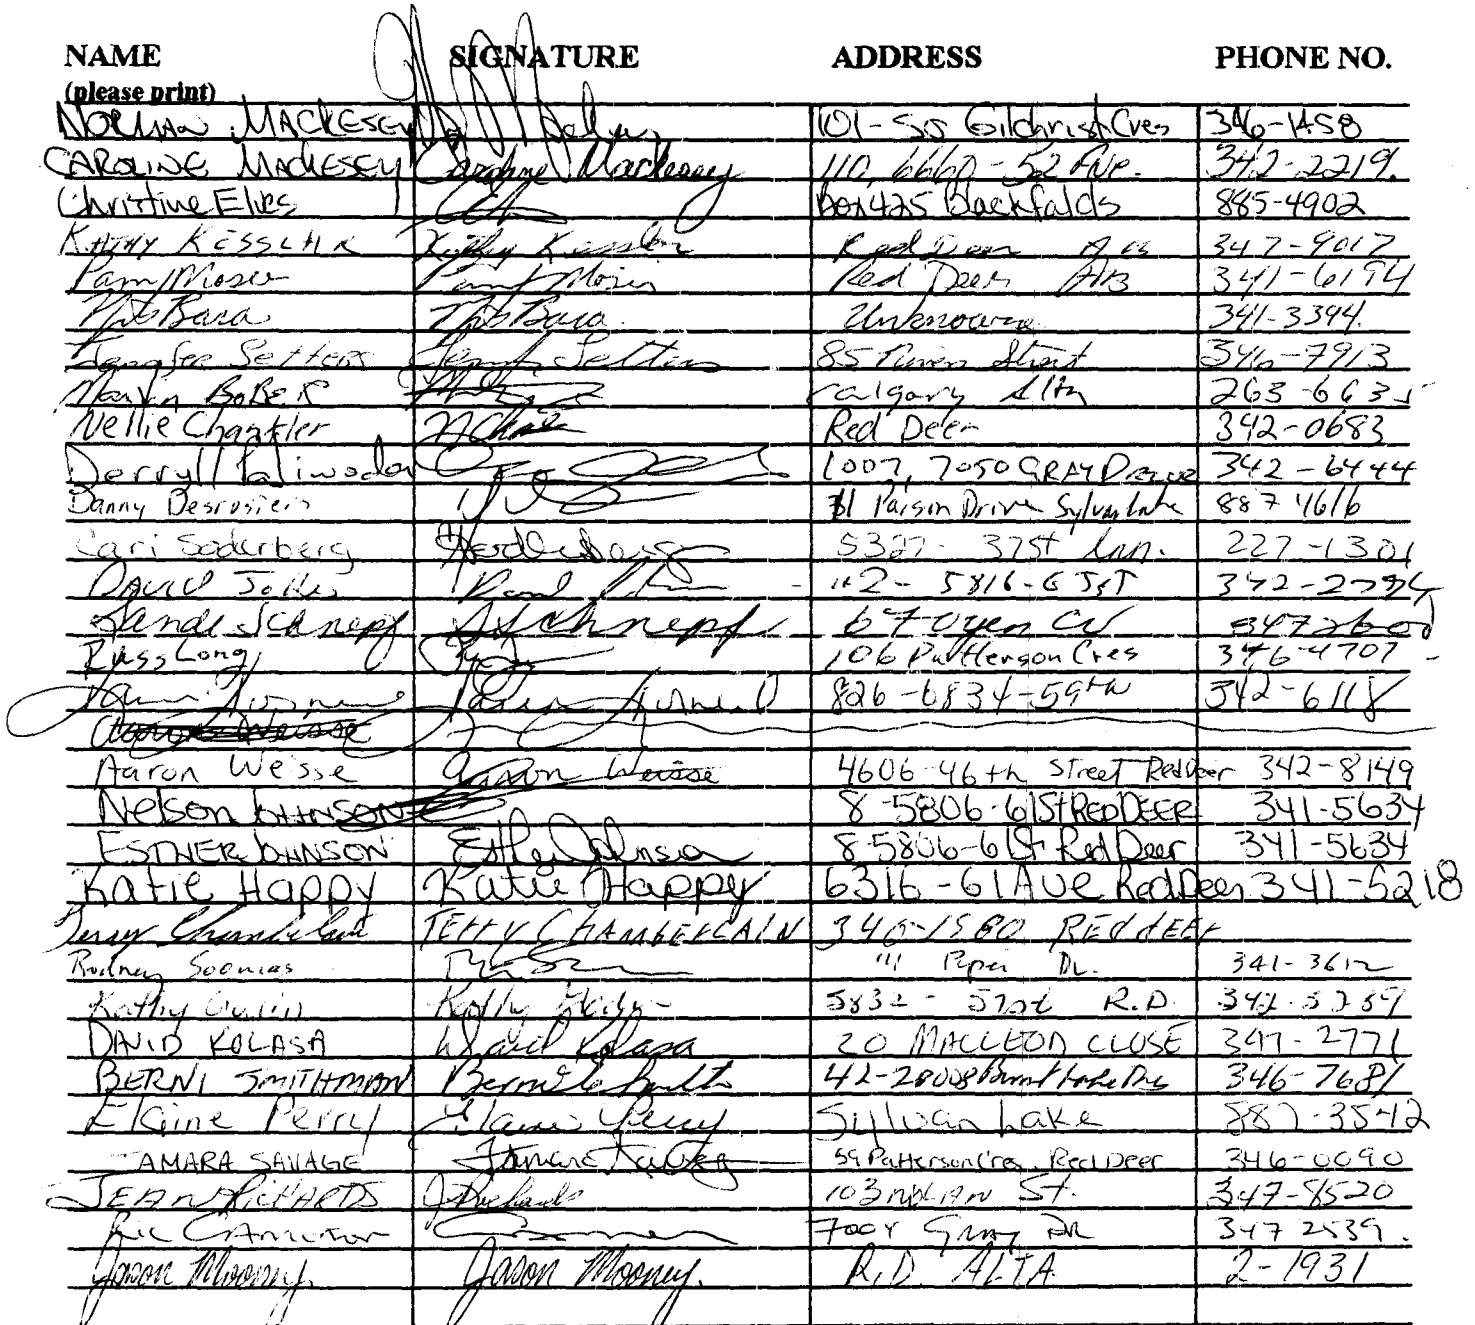 NAME SIGNATURE ADDRESS PHONE NO.
(please print)
NORMAN MACKESEY 101-55 Gilchrist Cres 346-1458
CAROLINE MACKESEY Caroline Mackesey 110, 6660-52 Ave. 342-2219.
Christine Elves Box 425 Blackfalds 885-4902
KATHY KESSLER Kathy Kessler Red Deer 347-9017
Pam Moser Pam Moser Red Deer AB 341-6194
Unknown 341-3394
Setters Setters 85 Street 346-7913
BOBER Calgary Alta 263-6635
Nellie Chantler Red Deer 342-0683
Derryl Paliwoda 1007, 7050 GRAY Drive 342-6444
Danny Desrosiers 31 Parson Drive Sylvan Lake 887 4616
Cari Soderberg 5327- 37st 227-1301
DAVID
Schnepf Schnepf 67 Oyen Cr 347 2600
Russ Long 106 Patterson Cres 346-4707
826-6834-59th 342-6118
Aaron Weisse
Aaron Weisse Aaron Weisse 4606-46th Street Red Deer 342-8149
Nelson JOHNSON 8-5806-61St RED DEER 341-5634
ESTHER JOHNSON Esther Johnson 8-5806-61St Red Deer 341-5634
Katie Happy Katie Happy 6316-61 AVE Red Deer 341-5218
Terry Chamberlain TERRY CHAMBERLAIN 346-1580 RED DEER
Rodney Soonias 111 Piper Dr. 341-3612
Kathy Kathy 5832- 57st R.D.
DAVID KOLASA David Kolasa 20 MACLEOD CLOSE 347-2771
BERNI SMITHMAN 42-28008 Burnt Lake 346-7681
Elaine Perry Elaine Perry Sylvan Lake 887-3542
TAMARA SAVAGE Tamara Savage 59 Patterson Cres. Red Deer 346-0090
JEAN RICHARDS J Richards 103 St. 347-8520
Ric CAMERON 7004 Gray DR 347 2539.
Jason Mooney. Jason Mooney. R.D. ALTA 2-1931